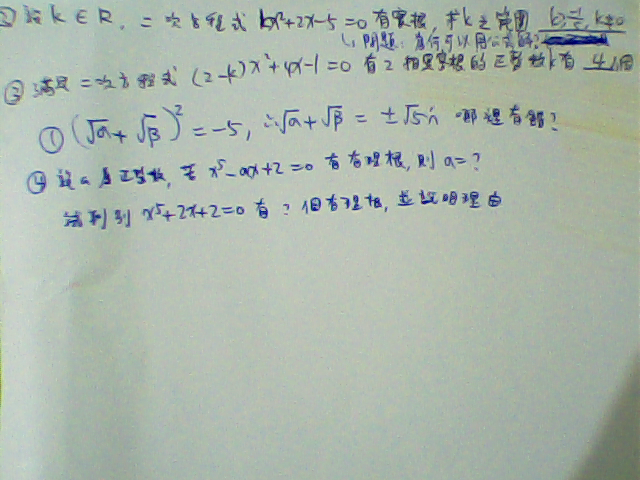 ② 設 k ∈ R, 二次方程式 kx²+2x-5=0 有實根, 求 k 之範圍 k≥-1/5, k≠0
↳ 問題: 為何可以用公式解?
③ 滿足二次方程式 (2-k)x²+4x-1=0 有2相異實根的正整數k有 4 個
① (√α+√β)²=-5, ∴√α+√β=±√5i 哪裡有錯?
④ 設 a 為正整數, 若 x⁵-ax+2=0 有有理根, 則 a=?
請判別 x⁵+2x+2=0 有? 個有理根, 並說明理由